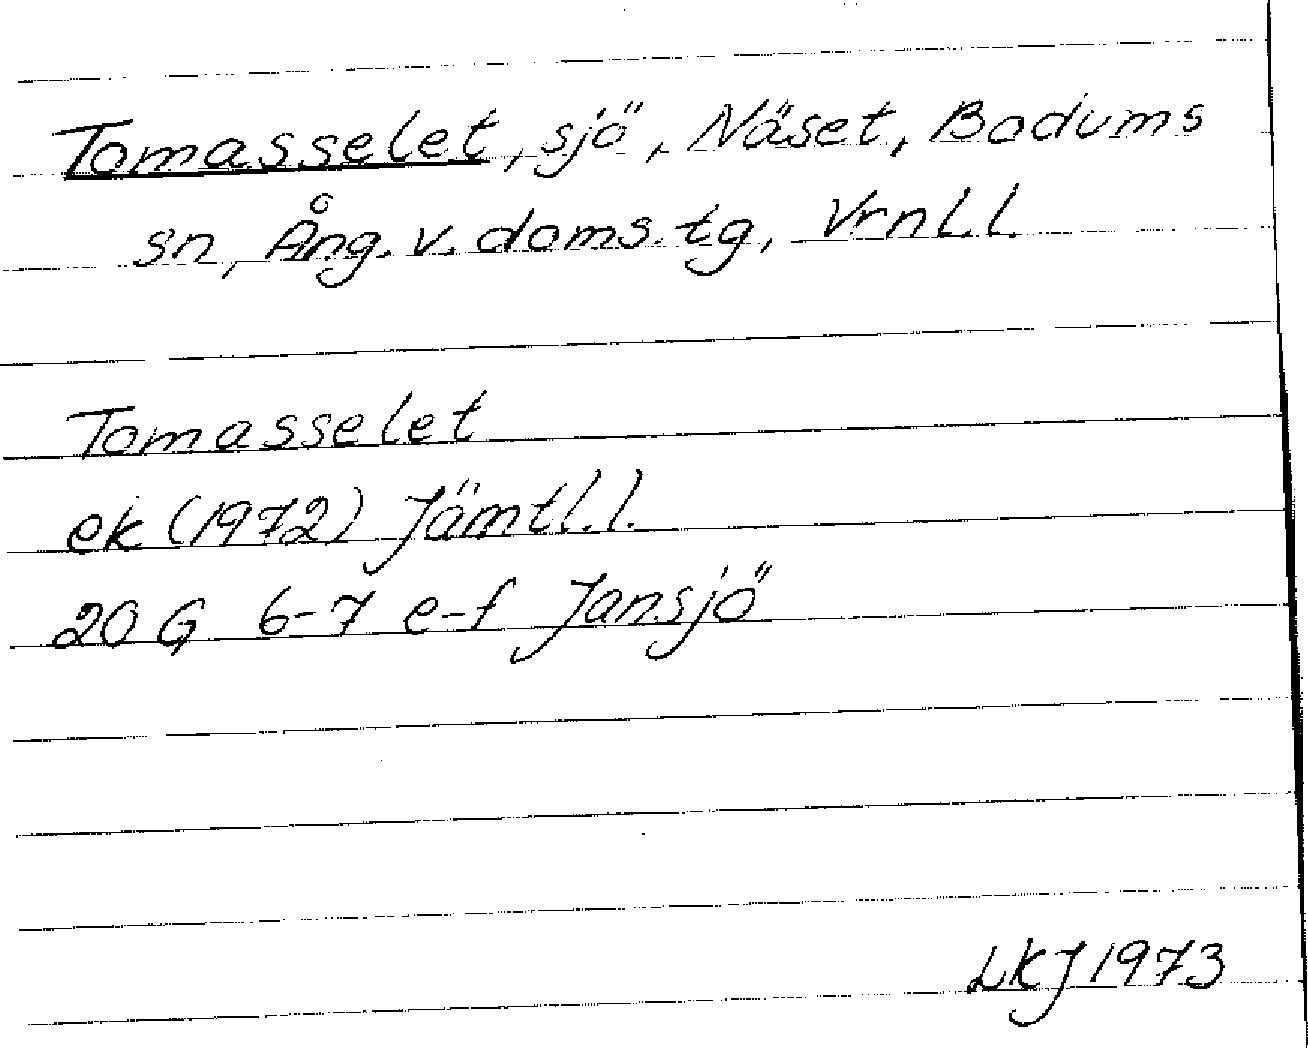 Tomasselet, sjö, Näset, Bodums
sn, Ång. v. doms. tg, Vrnl.l.
Tomasselet
ek (1972) Jämtl.l.
20 G 6-7 e-f Jansjö
LKJ 1973